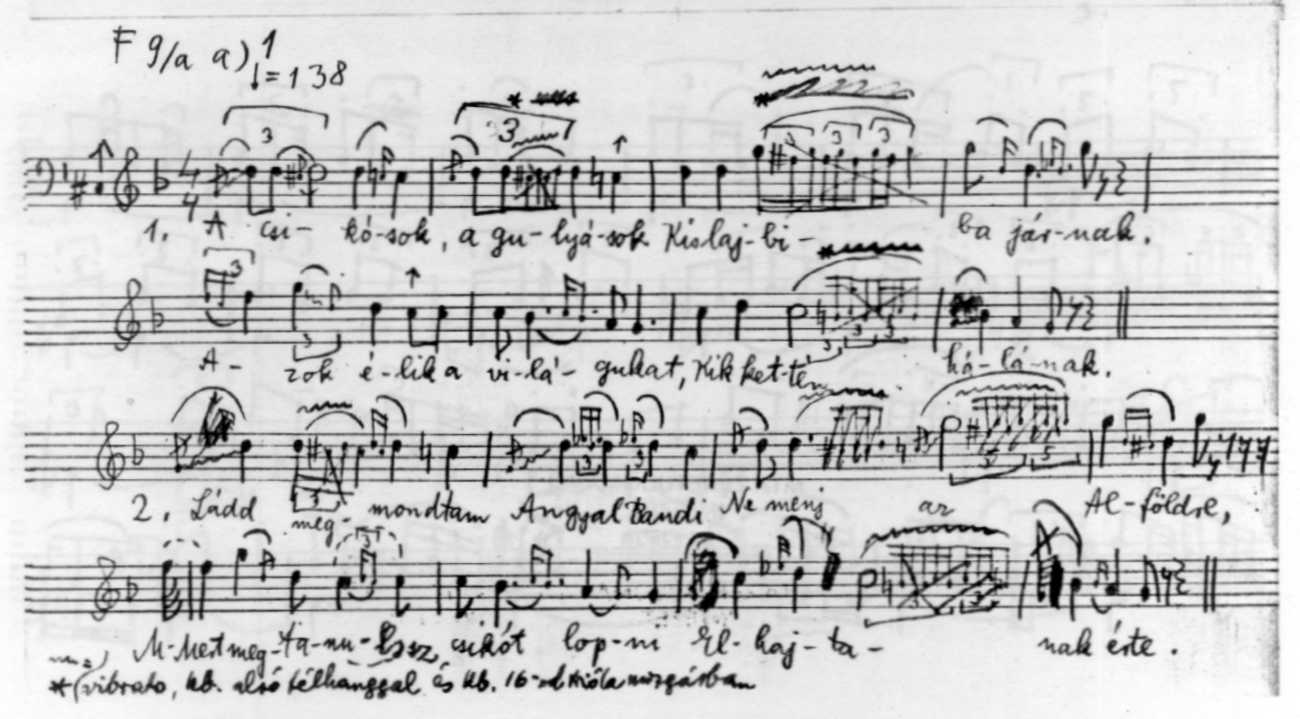 F 9/a a) 1
♩=138
1. A csi- kó-sok, a gu-lyá-sok Kislaj-bi- ba jár-nak.
A- zok é-lik a vi-lá- gukat, Kik ket-tén há-lá-nak.
2. Ládd meg- mondtam Angyal Bandi Ne menj az Al-földre,
M-Mert meg-ta-nu-lsz csikót lop-ni El-haj-ta- nak érte.
*(vibrato, kb. alsó félhanggal és kb. 16-od trióla mozgásban